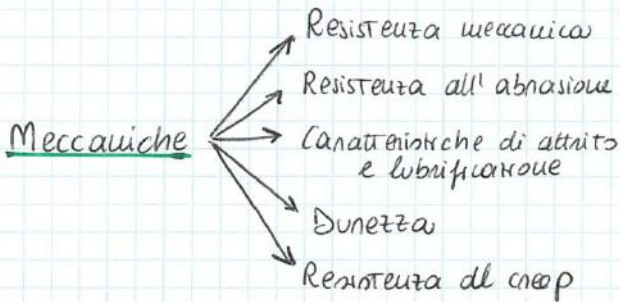 Resistenza meccanica
Resistenza all'abrasione
Meccaniche
Caratteristiche di attrito
e lubrificazione
Durezza
Resistenza al creep